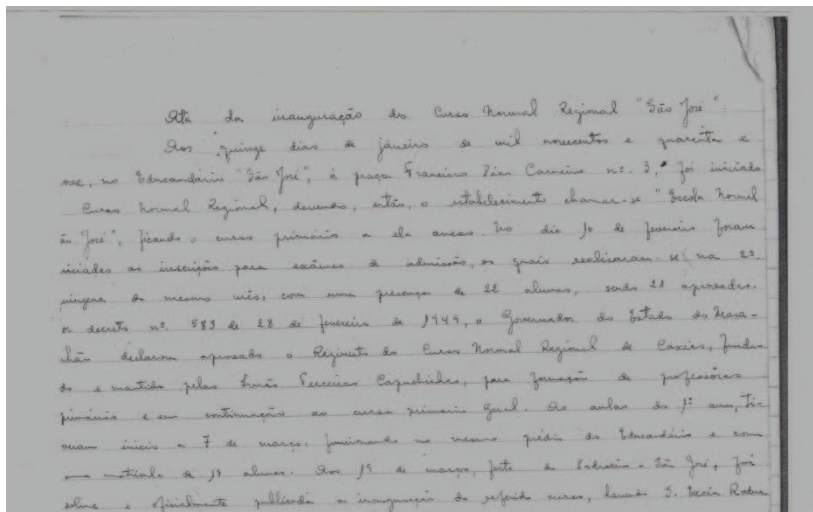 Ata da inauguração do Curso Normal Regional "São José"
Aos quinze dias de janeiro de mil novecentos e quarenta e
ove, no Educandário "São José", à praça Francisco Dias Carneiro nº. 3, foi iniciado
Curso Normal Regional, devendo, então, o estabelecimento chamar-se "Escola Normal
ão José", ficando o curso primário a ela anexo. No dia 10 de fevereiro foram
iniciadas as inscrições para exâmes de admissão, os quais realizaram-se na 2ª.
do mesmo mês, com uma presença de 22 alunas, sendo 21 aprovadas.
or decreto nº. 583 de 28 de fevereiro de 1949, o Governador do Estado do Mara-
nhão declarou aprovado o Regimento do Curso Normal Regional de Caxias, funda-
do e mantido pelas Irmãs Terceiras Capuchinhas, para formação de professôras
primárias e em continuação ao curso primário geral. As aulas do 1º ano, ti-
veram inicio a 7 de março, funcionando no mesmo prédio do Educandário e com
uma matrícula de 19 alunas. Aos 19 de março, festa de São José, foi
solene e oficialmente publicada a inauguração do referido curso, havendo S. Excia